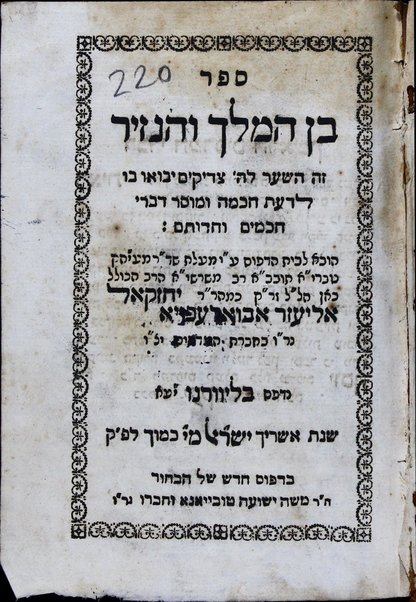 ספר
220
בן המלך והנזיר
זה השער לה׳ צדיקים יבואו בו
לדעת חכמה ומוסר דברי
חכמים וחדותם :
הובא לבית הדפוס ע״י מעלת שד״ר מעי״הק
טברי״א תובב״א רב משרשי״א הרב הכולל
כאן הל״ל זר״ק כמהר״ר יחזקאל
אליעזר אבואלעפייא
נר״ו בחברת יצ״ו
נדפס בליוורנו יע״א
שנת אשריך ישראל מי כמוך לפ״ק
בדפוס חדש של הבחור
ה״ר משה ישועת טובייאנא וחברו נר״ו